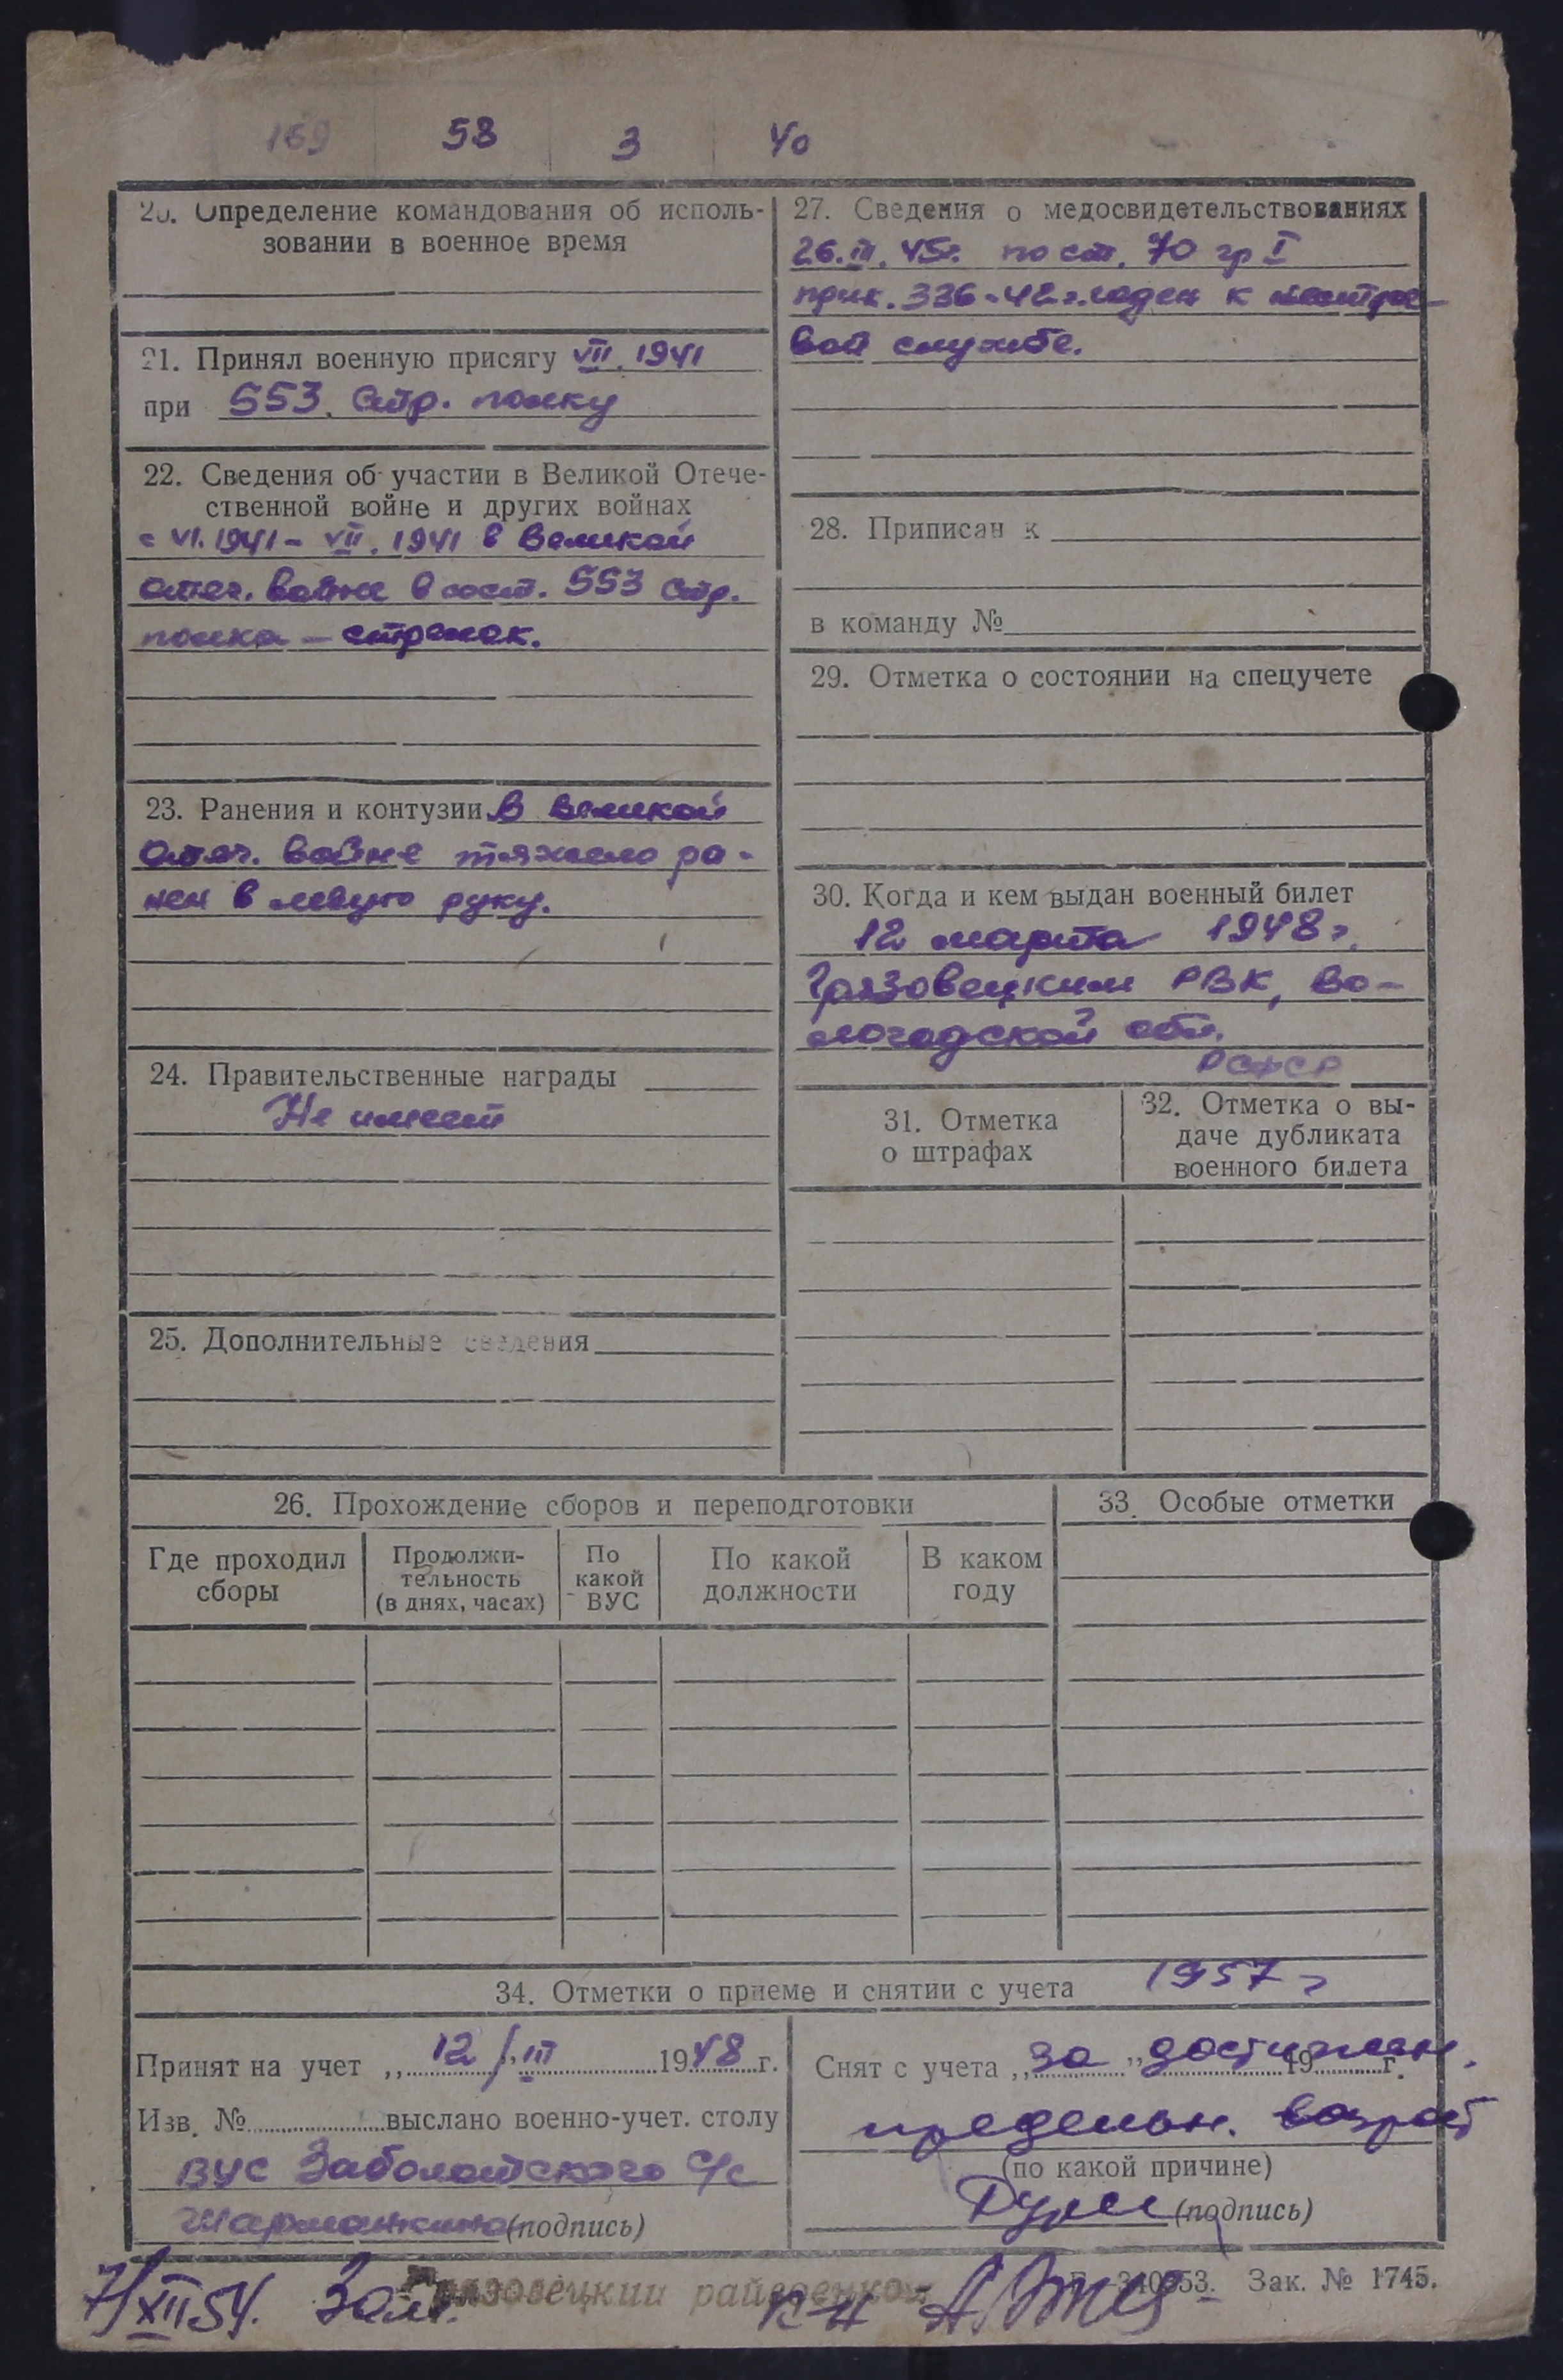 169 58 3 40
20. Определение командования об исполь-
зовании в военное время
21. Принял военную присягу VII. 1941
при 553. Стр. полку
22. Сведения об участии в Великой Отече-
ственной войне и других войнах
с VI. 1941 - VII. 1941 в Великой
отеч. войне в сост. 553 стр.
полка — стрелок.
23. Ранения и контузии В великой
отеч. войне тяжело ра-
нен в левую руку.
24. Правительственные награды
Не имеет
25. Дополнительные сведения
27. Сведения о медосвидетельствованиях
26.III. 45г. по ст. 70 гр I
прик. 336-42г. годен к нестрое-
вой службе.
28. Приписан к
в команду №
29. Отметка о состоянии на спецучете
30. Когда и кем выдан военный билет
12 марта 1948 г.
Грязовецким РВК, Во-
логодской обл.
РСФСР
31. Отметка
о штрафах
32. Отметка о вы-
даче дубликата
военного билета
26. Прохождение сборов и переподготовки
Где проходил
сборы
Продолжи-
тельность
(в днях, часах)
По
какой
ВУС
По какой
должности
В каком
году
33. Особые отметки
34. Отметки о приеме и снятии с учета 1957 г
Принят на учет „12/" III 1948 г.
Изв. № выслано военно-учет. столу
ВУС Заболотского С/с
(подпись)
Снят с учета „за" достижен. 19 г.
предельн. возраст
(по какой причине)
(подпись)
7/XII 54. Зам. Грязовецкий райвоенком к-н
Зак. № 1745.